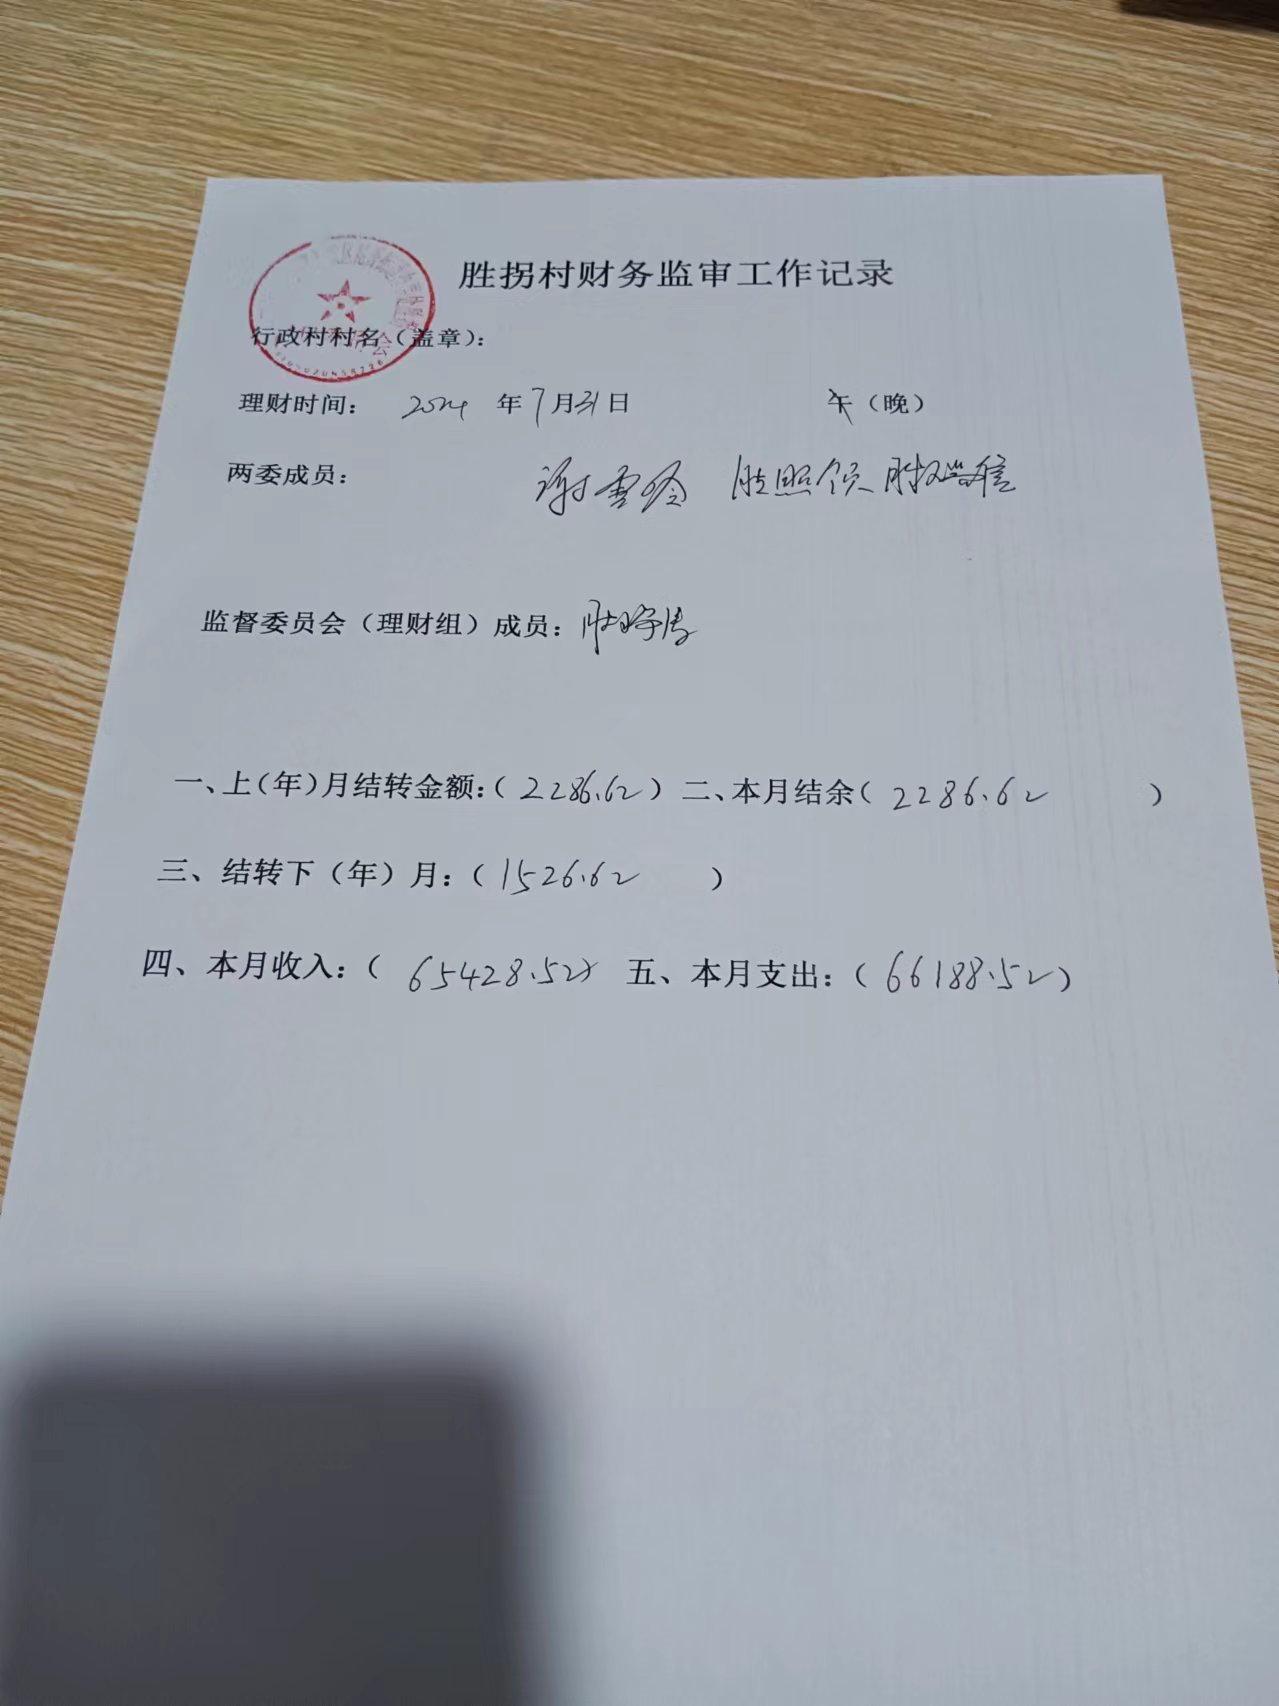 胜拐村财务监审工作记录
行政村村名（盖章）：
理财时间： 2024 年 7 月 31 日 午（晚）
两委成员： 谢雪玲 胜照领
监督委员会（理财组）成员：
一、上（年）月结转金额：（ 2286.62 ） 二、本月结余（ 2286.62 ）
三、结转下（年）月：（ 1526.62 ）
四、本月收入：（ 65428.52 ） 五、本月支出：（ 66188.52 ）